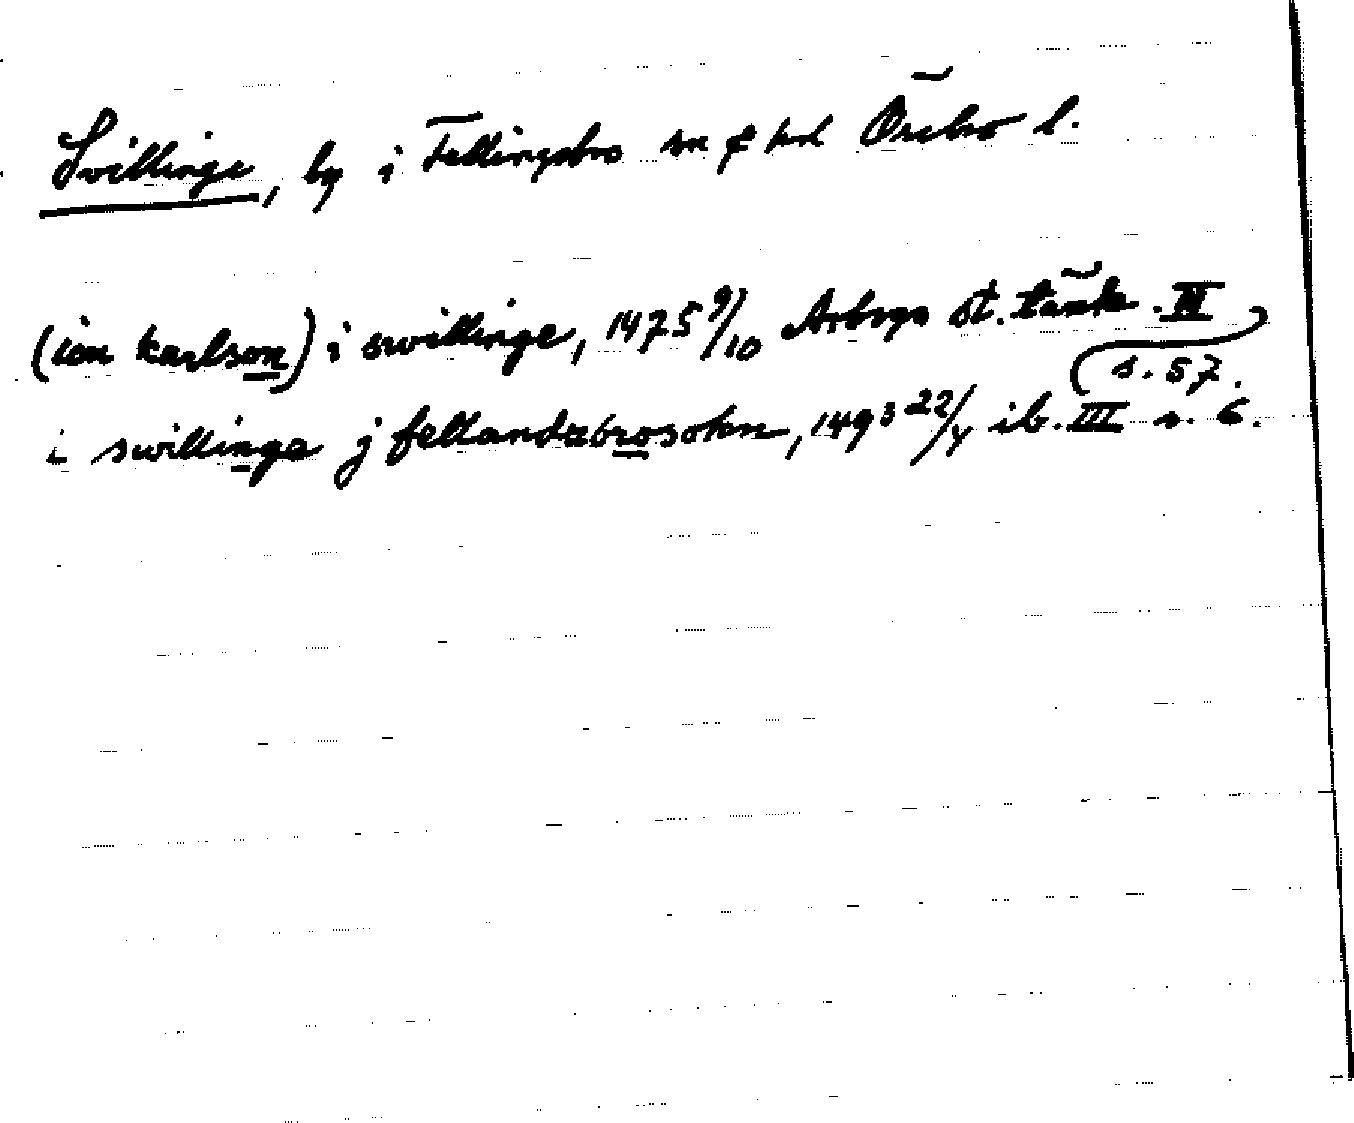 Svillinge, by i Fellingsbro sn o hd Örebro l.
(ion karlson) i swillinge, 1475 9/10 Arboga st. tänk. II
s. 57.
i swillinga j fellandzbrosokn, 1493 22/4 ib. III s. 6.